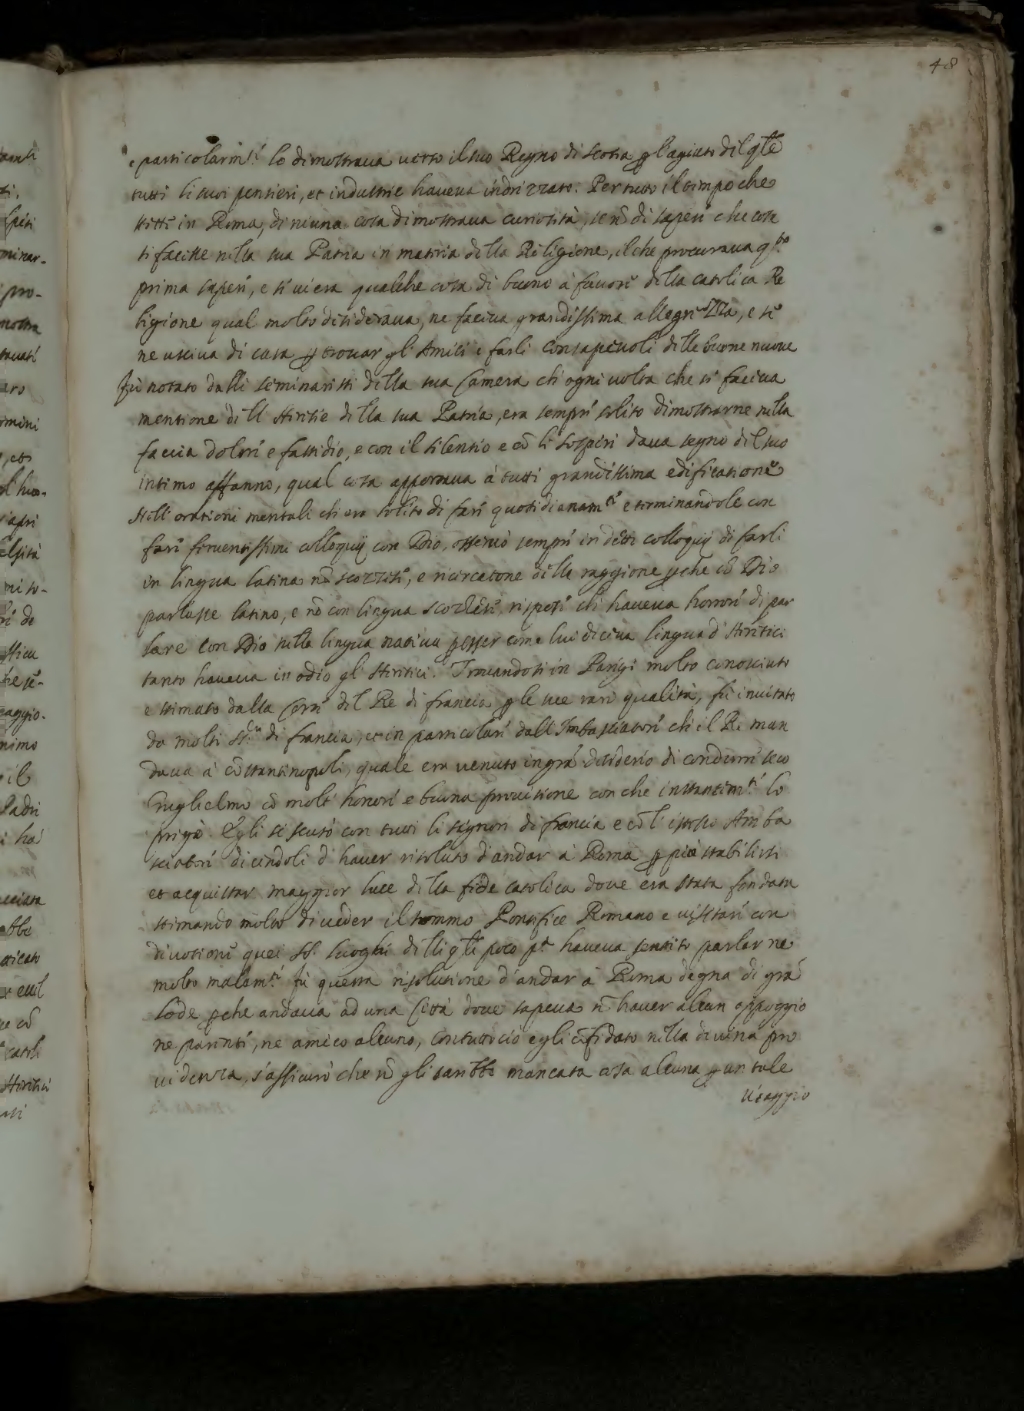 48
e particolarm.te lo dimostraua uerso il suo Regno di Scotia p l'agiuto del q̃le
tutti li suoi pensieri, et industrie haueua indrizzato. Per tutto il tempo che
stette in Roma, di niuna cosa dimostraua curiosità, se nõ di saper che cosa
si facesse nella sua Patria in materia della Religione, il che procuraua q.to
prima saper, e se ui era qualche cosa di buono à fauore della catolica Re
ligione qual molto desideraua, ne faceua grandissima allegrezza, e se
ne usciua di casa p trouar gl'Amici e farli consapeuoli delle buone nuoue
Fù notato dalli seminaristi della sua Camera ch'ogni uolta che si faceua
mentione dell'Heresie della sua Patria, era sempre solito dimostrarne nella
faccia dolori e fastidio, e con il silentio e cõ li sospiri daua segno del suo
intimo affanno, qual cosa apportaua à tutti grandissima edificatione
Nell'orationi mentali ch'era solito di fare quotidianam.te e terminandole con
fare feruentissimi colloquij con Dio, osseruò sempre in detti colloquij di farli
in lingua latina nõ scozzese, e ricercatone della raggione pche cõ Dio
parlasse latino, e nõ con lingua scozzese rispose ch'haueua horrore di par
lare con Dio nella lingua natiua p esser come lui diceua lingua d'Heretici
tanto haueua in odio gl'Heretici. Trouandosi in Parigi molto conosciuto
e stimato dalla Corte del Re di francia p le sue rare qualità, fù inuitato
da molti SS.ri di francia, et in particolare dall'Imbasciatore ch'il Re man
daua à cõstantinopoli, quale era uenuto in grã desiderio di condurre seco
Guglielmo cõ molti honori e buona prouisione con che instantem.te lo
pregò. Egli si scusò con tutti li signori di francia e cõ l'istesso Amba
sciatore dicendoli d'hauer risoluto d'andar à Roma p più stabilirsi
et acquistar maggior luce della fede catolica doue era stata fondata
stimando molto di ueder il sommo Pontefice Romano e uisitare con
diuotione quei SS. luoghi delli q̃li poco p.a haueua sentito parlar ne
molto malam.te fù questa risolutione d'andar à Roma degna di grã
lode pche andaua ad una Città doue sapeua nõ hauer alcun appoggio
ne parenti, ne amico alcuno, contuttociò egli cõfidato nella diuina pro
uidenza, s'assicurò che nõ gli sarebbe mancata cosa alcuna p un tale
uiaggio